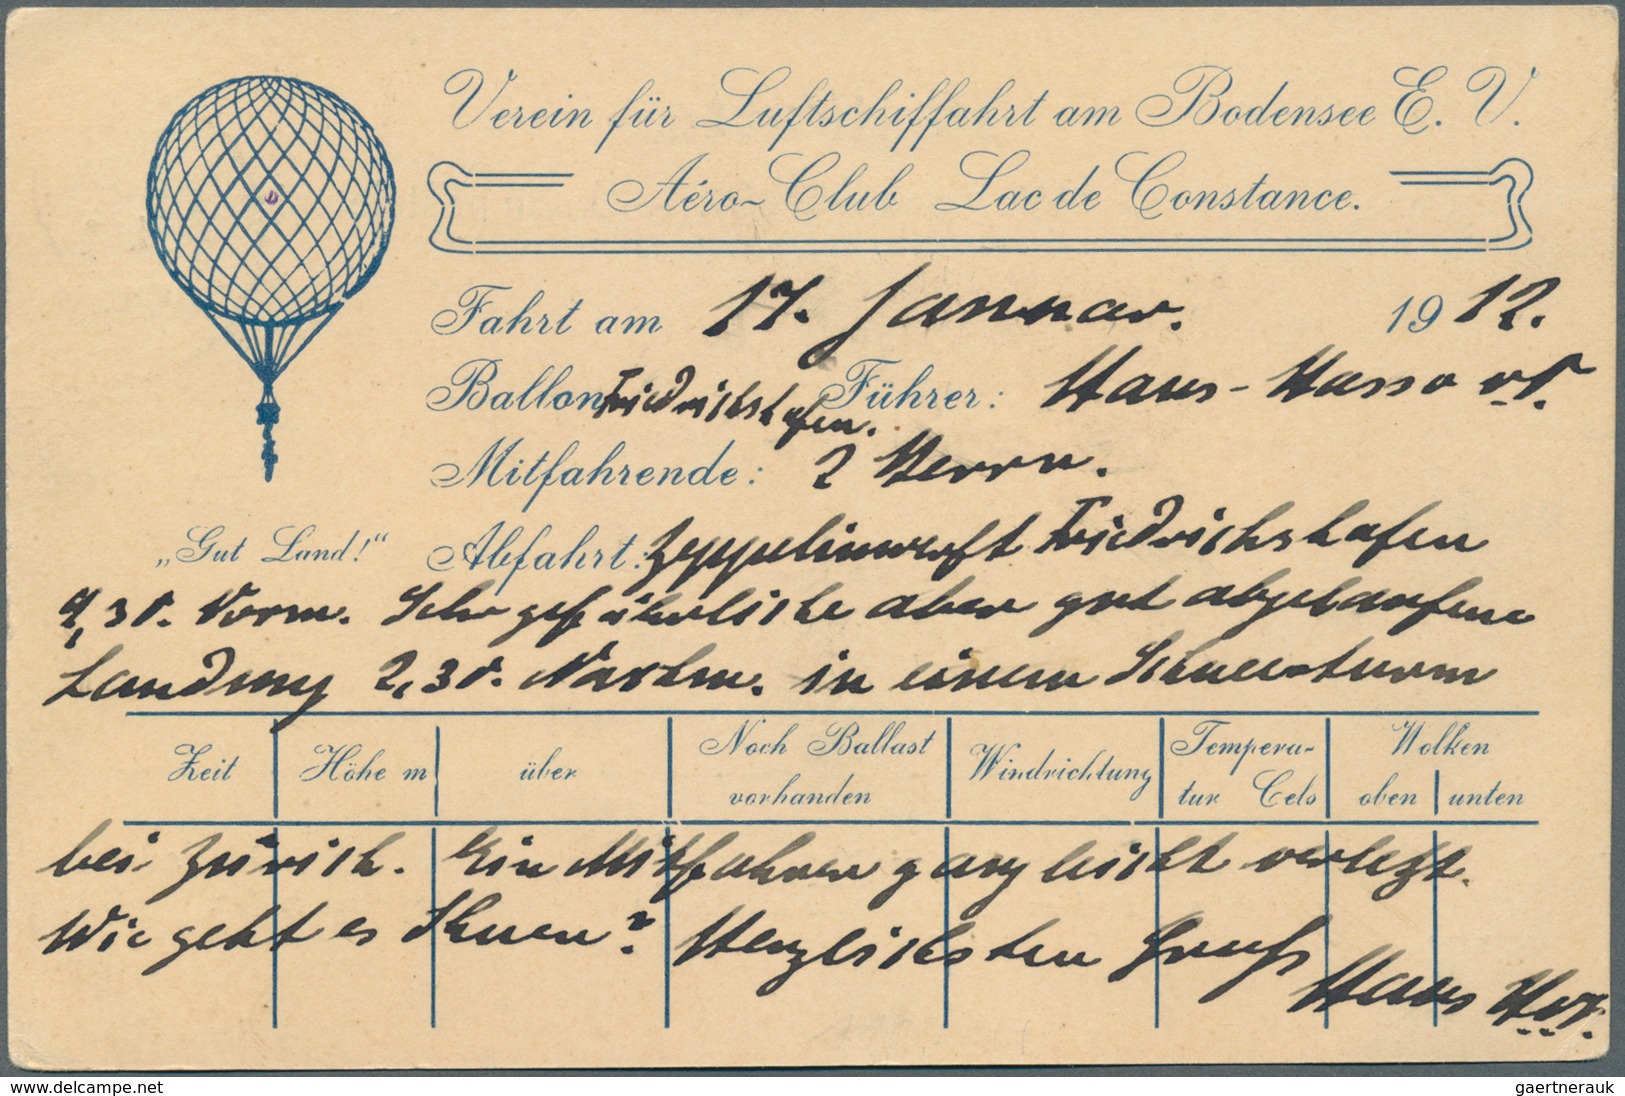 Verein für Luftschiffahrt am Bodensee E. V.
Aéro-Club Lac de Constance.
Fahrt am 17. Januar. 1912.
Ballon Friedrichshafen. Führer: Hans-Hasso v.
Mitfahrende: 2 Herrn.
„Gut Land!“ Abfahrt: Zeppelinwerft Friedrichshafen
9,30. Vorm. Sehr gefährliche aber gut abgelaufene
Landung 2,30. Nachm. in einem Schneesturm
Zeit Höhe m über Noch Ballast vorhanden Windrichtung Tempera- tur Cels Wolken oben unten
bei Zürich. Ein Mitfahrer ganz leicht verletzt.
Wie geht es Ihnen? Herzlichsten Gruß
Hans
gaertnerauk
www.delcampe.net